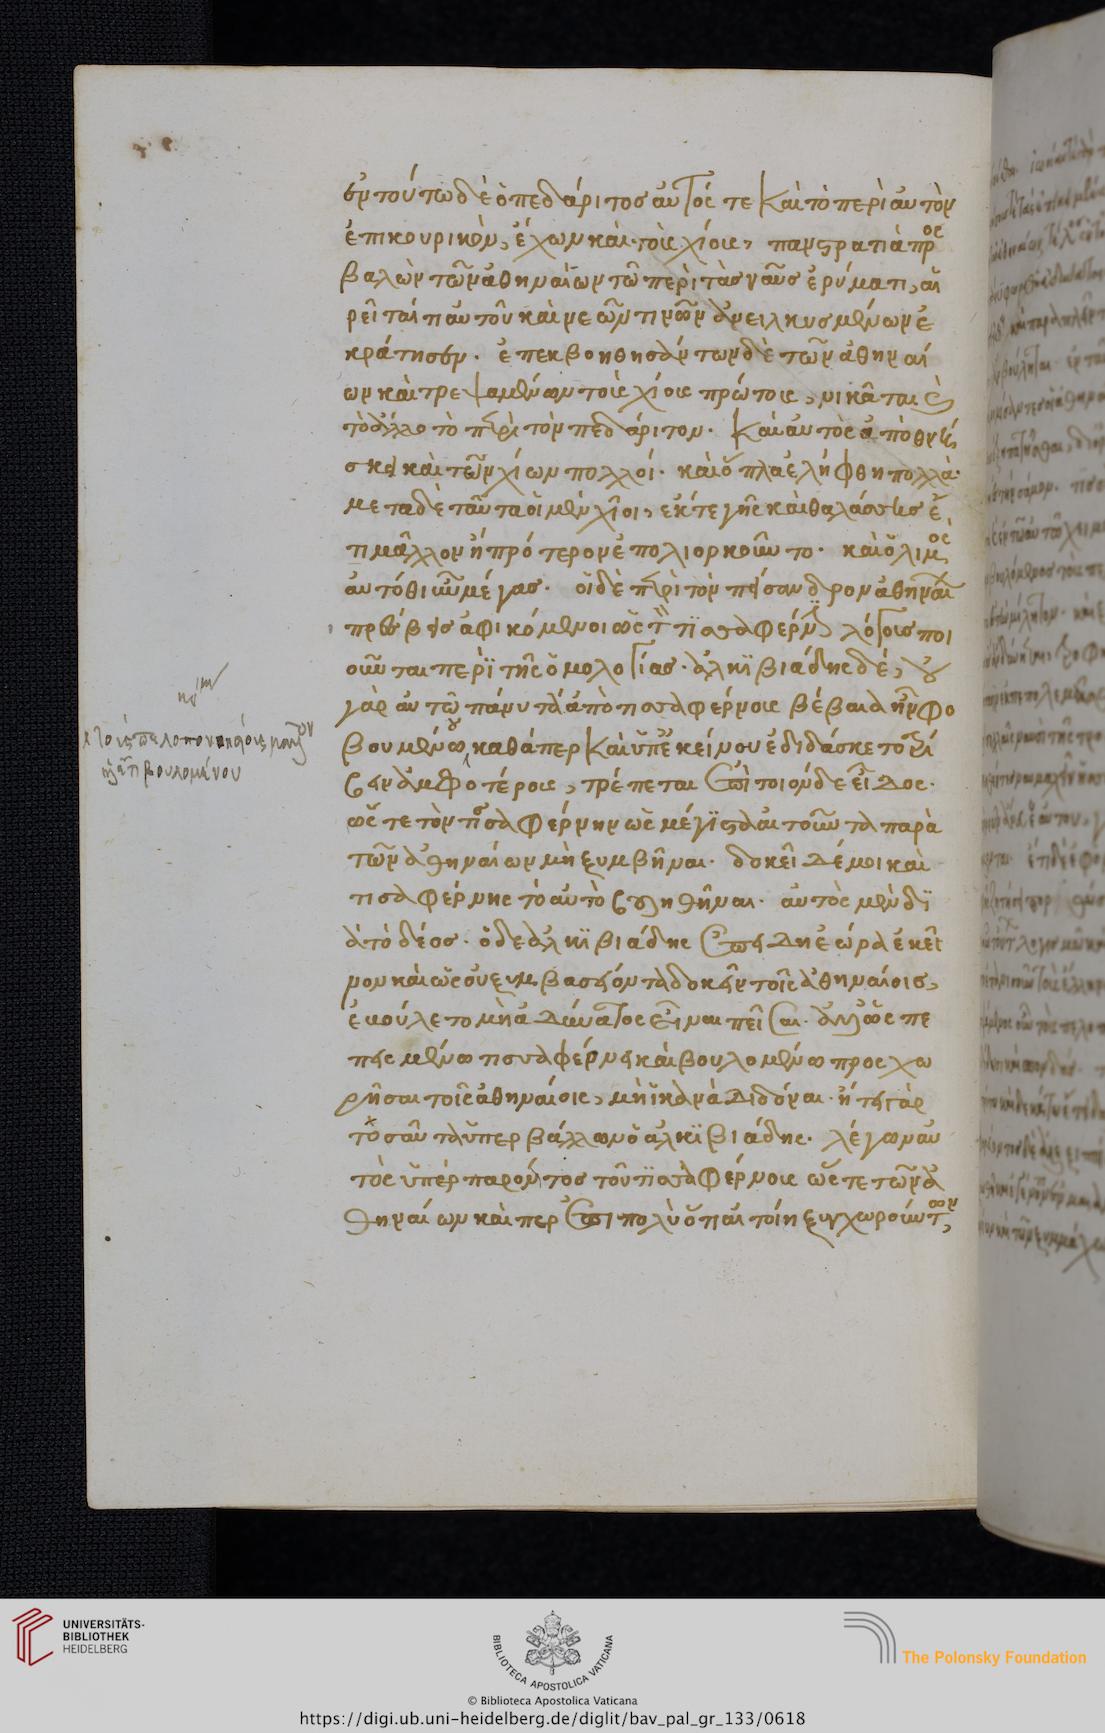 ἐν τούτω δὲ ὁ πεδάριτος αὐτός τε καὶ τὸ περὶ αὐτὸν
ἐπικουρικὸν, ἔχων καὶ τοὺς χίους, πανστρατιᾶ προσ
βαλὼν τῶν ἀθηναίων τῶ περὶ τὰς ναῦς ἐρύματι, αἱ
ρεῖ τέ τι αὐτοῦ καὶ νεῶν τινῶν ἀνειλκυσμένων ἐ
κράτησεν. ἐπεκβοηθησάντων δὲ τῶν ἀθηναί
ων καὶ τρεψαμένων τοὺς χίους πρώτους, νικᾶται καὶ
τὸ ἄλλο τὸ περὶ τὸν πεδάριτον. καὶ αὐτὸς ἀποθνή
σκει καὶ τῶν χίων πολλοί. καὶ ὅπλα ἐλήφθη πολλά.
μετὰ δὲ ταῦτα οἱ μὲν χῖοι, ἔκ τε γῆς καὶ θαλάσσης ἔ
τι μᾶλλον ἢ πρότερον ἐπολιορκοῦντο. καὶ ὁ λιμὸς
αὐτόθι ἦν μέγας. οἱ δὲ περὶ τὸν πείσανδρον ἀθηναίων
πρέσβεις ἀφικόμενοι ὡς τὸν τισσαφέρνην λόγους ποι
οῦνται περὶ τῆς ὁμολογίας. ἀλκιβιάδης δὲ, οὐ
γὰρ αὐτῶ πάνυ τὰ ἀπὸ τισσαφέρνους βέβαια ἦν φο
βουμένου, καθάπερ καὶ ὑπ' ἐκείνου ἐδιδάσκετο τρί
βειν ἀμφοτέρους, τρέπεται ἐπὶ τοιόνδε εἶδος.
ὥστε τὸν τισσαφέρνην ὡς μέγιστα αἰτοῦντα παρὰ
τῶν ἀθηναίων μὴ ξυμβῆναι. δοκεῖ δέ μοι καὶ
τισσαφέρνης τὸ αὐτὸ βουληθῆναι. αὐτὸς μὲν δι
ὰ τὸ δέος. ὁ δὲ ἀλκιβιάδης ἐπειδὴ ἑώρα ἐκεῖ
νον καὶ ὣς οὐ ξυμβασείοντα δοκεῖν τοῖς ἀθηναίοις,
ἐβούλετο μὴ ἀδύνατος εἶναι πεῖσαι. ἀλλ' ὡς πε
πεισμένω τισσαφέρνει καὶ βουλομένω προσχω
ρῆσαι τοὺς ἀθηναίους, μὴ ἱκανὰ διδόναι. ἤτει γὰρ
τοσαῦτα ὑπερβάλλων ὁ ἀλκιβιάδης. λέγων αὐ
τὸς ὑπὲρ παρόντος τοῦ τισσαφέρνους ὥστε τῶν ἀ
θηναίων καίπερ ἐπὶ πολὺ ὅ τι αἰτοίη ξυγχωρούντων,
τοῖς πελοπονησίοις μᾶλλον
ἐπιβουλομένου
UNIVERSITÄTS-
BIBLIOTHEK
HEIDELBERG
BIBLIOTECA APOSTOLICA VATICANA
The Polonsky Foundation
© Biblioteca Apostolica Vaticana
https://digi.ub.uni-heidelberg.de/diglit/bav_pal_gr_133/0618